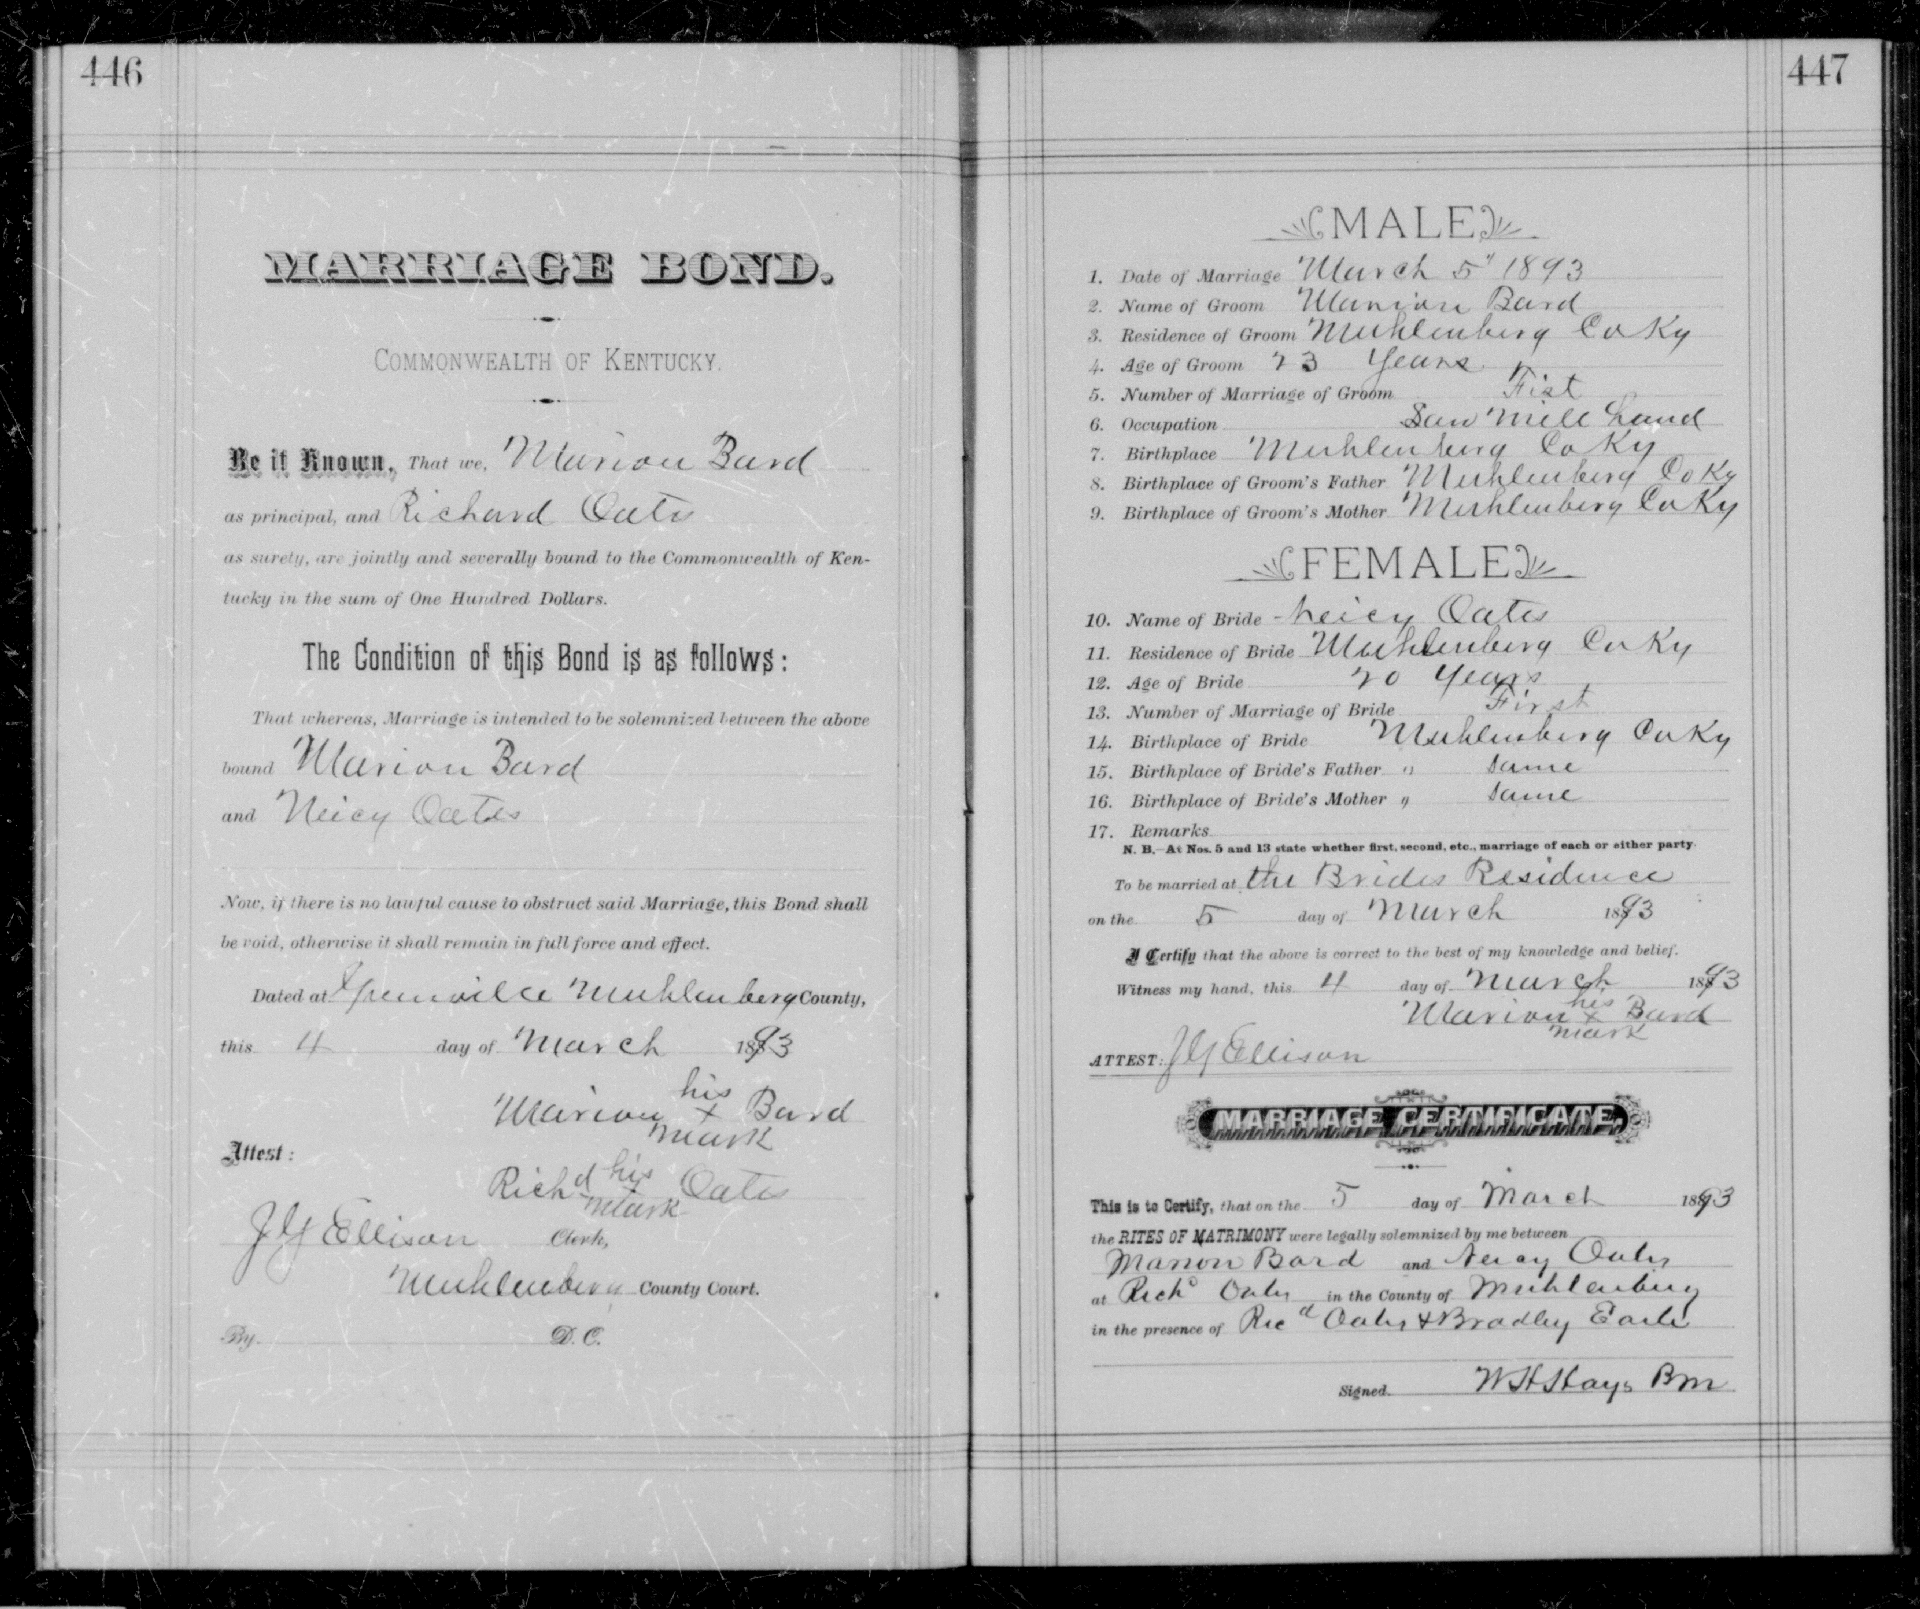 446
MARRIAGE BOND.
COMMONWEALTH OF KENTUCKY.
Be it Known, That we, Marion Bard
as principal, and Richard Oats
as surety, are jointly and severally bound to the Commonwealth of Ken-
tucky in the sum of One Hundred Dollars.
The Condition of this Bond is as follows:
That whereas, Marriage is intended to be solemnized between the above
bound Marion Bard
and Neicy Oates
Now, if there is no lawful cause to obstruct said Marriage, this Bond shall
be void, otherwise it shall remain in full force and effect.
Dated at Greenville Muhlenberg County,
this 4 day of March 1893
Marion his x mark Bard
Attest:
Richd his x mark Oates
J Y Ellison Clerk,
Muhlenberg County Court.
By. D. C.
447
MALE
1. Date of Marriage March 5" 1893
2. Name of Groom Marion Bard
3. Residence of Groom Muhlenberg Co Ky
4. Age of Groom 23 Years
5. Number of Marriage of Groom Fist
6. Occupation Saw Mill hand
7. Birthplace Muhlenberg Co Ky
8. Birthplace of Groom's Father Muhlenberg Co Ky
9. Birthplace of Groom's Mother Muhlenberg Co Ky
FEMALE
10. Name of Bride Neicy Oates
11. Residence of Bride Muhlenberg Co Ky
12. Age of Bride 20 Years
13. Number of Marriage of Bride First
14. Birthplace of Bride Muhlenberg Co Ky
15. Birthplace of Bride's Father " same
16. Birthplace of Bride's Mother " same
17. Remarks
N. B.—At Nos. 5 and 13 state whether first, second, etc., marriage of each or either party.
To be married at the Brides Residence
on the 5 day of March 1893
I Certify that the above is correct to the best of my knowledge and belief.
Witness my hand, this 4 day of March 1893
Marion his x mark Bard
ATTEST: J Y Ellison
MARRIAGE CERTIFICATE.
This is to Certify, that on the 5 day of March 1893
the RITES OF MATRIMONY were legally solemnized by me between
Marion Bard and Neicy Oates
at Richd Oates in the County of Muhlenberg
in the presence of Ricd Oates & Bradley Earle
Signed. W H Hays Bm